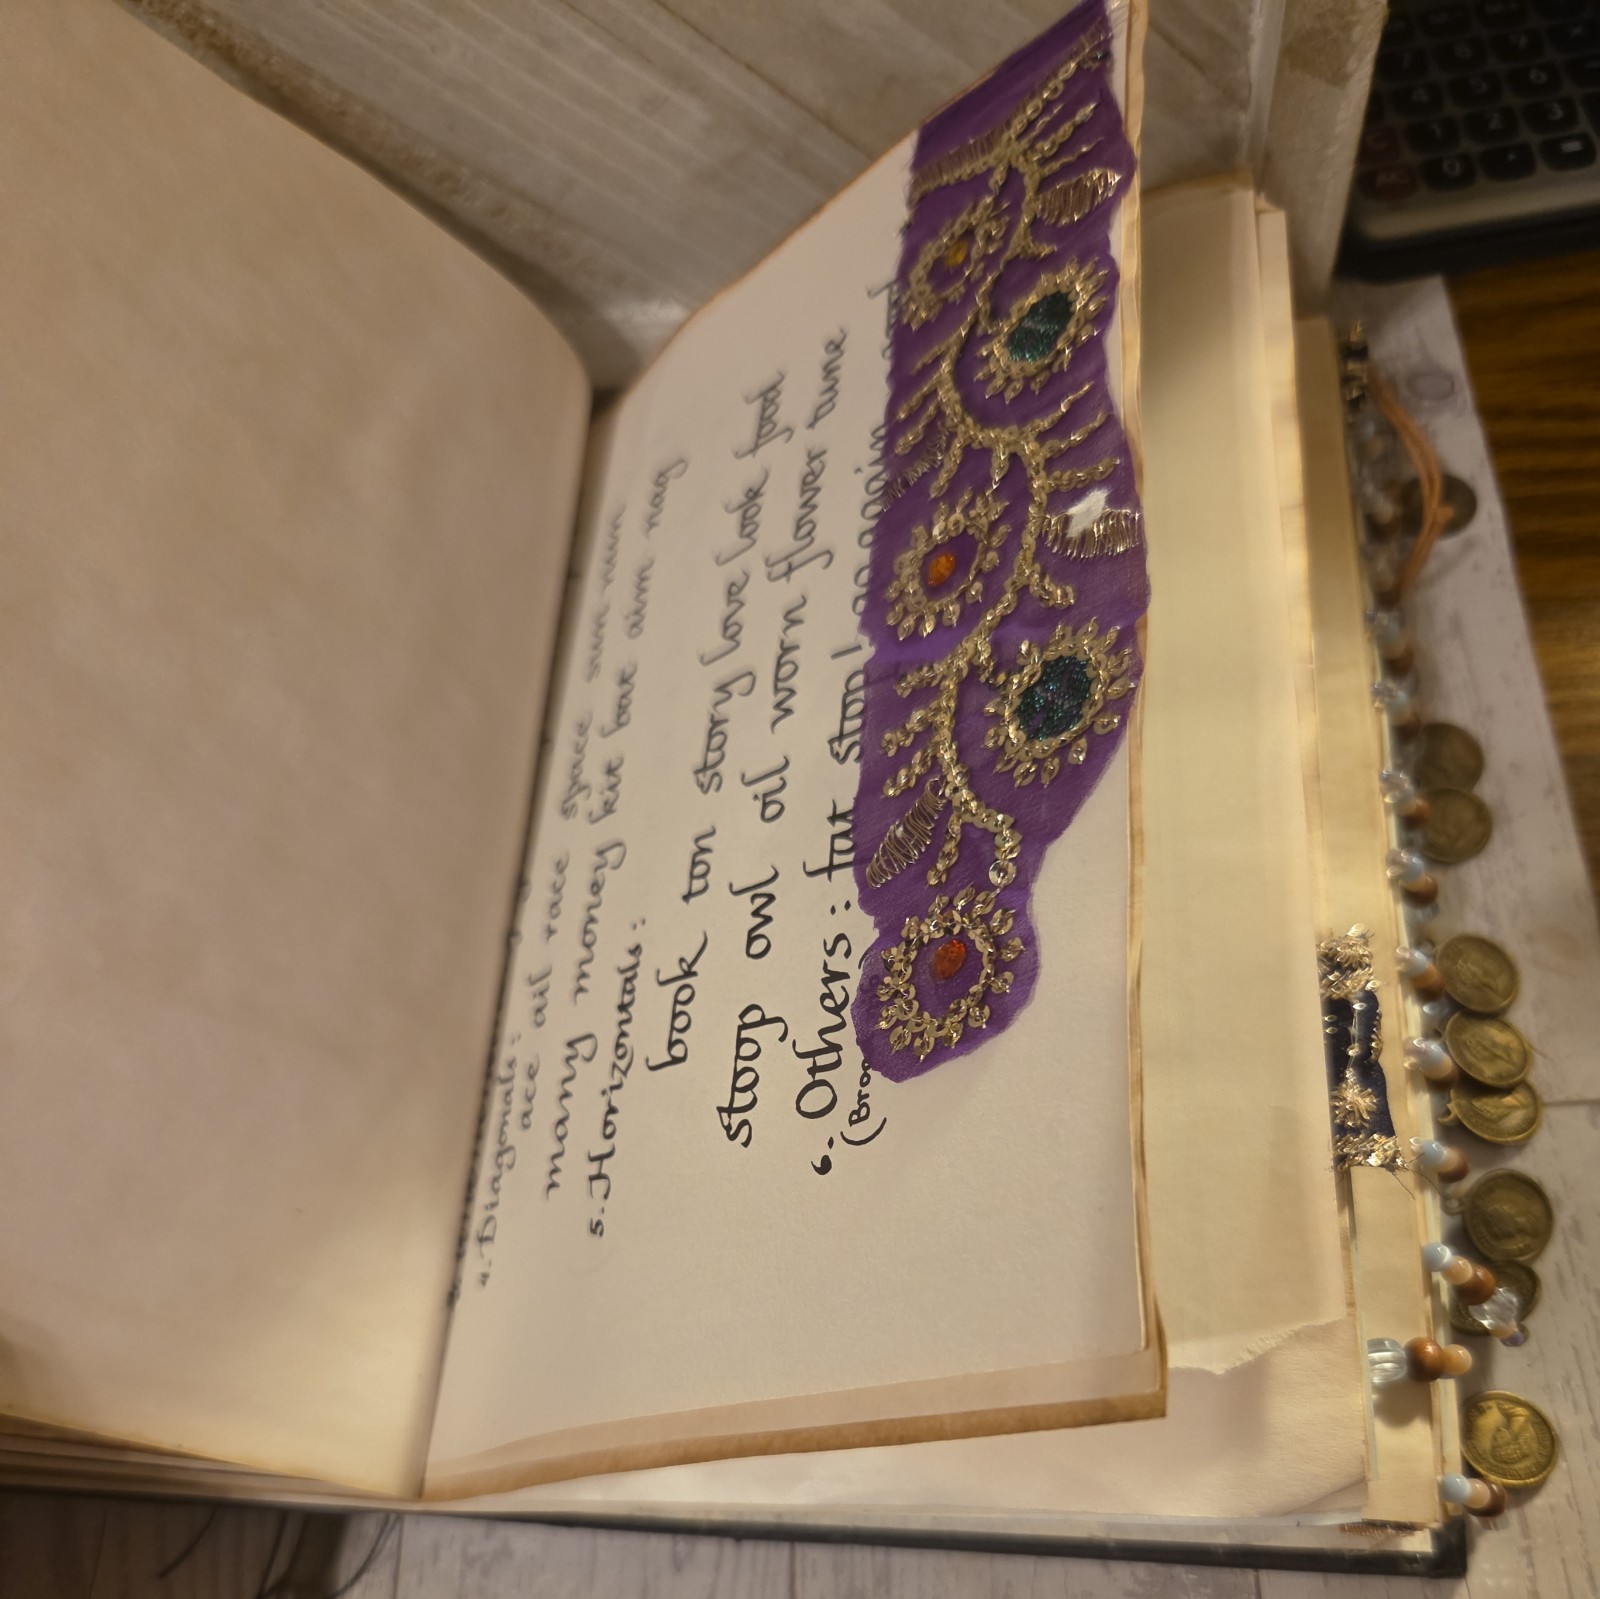 4. Diagonals:
ace ail race space sun nun
many money kit bat aim nag
5. Horizontals:
book ton story love look food
stoop owl oil worn flower tune
6. Others: fat stop! go again